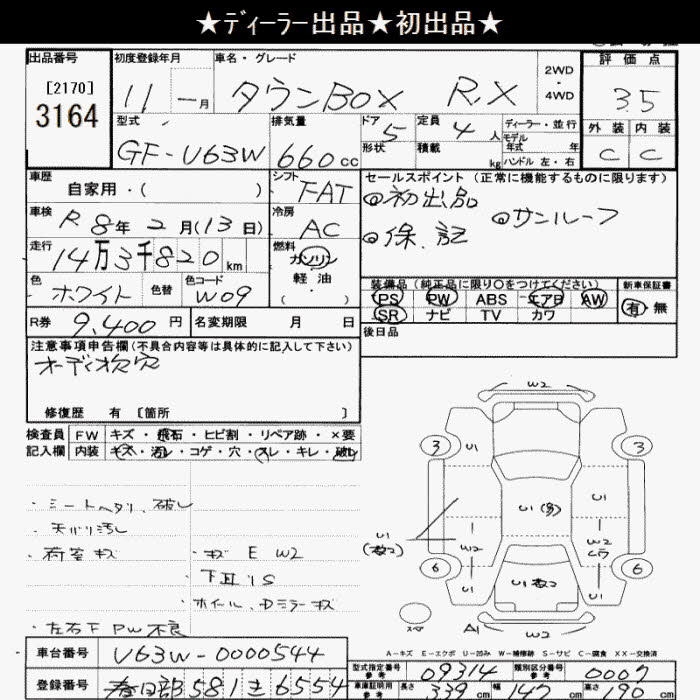 ★ディーラー出品★初出品★
出品番号
[2170]
3164
初度登録年月
11 - 月
車名・グレード
タウンBOX R.X
2WD
・
4WD
評価点
3.5
外装 内装
C C
型式
GF-U63W
排気量
660cc
ドア 5
形状
定員 4 人
積載 kg
ディーラー・並行
モデル
年式 年
ハンドル 左・右
車歴
自家用・( )
シフト
FAT
セールスポイント(正常に機能するものに限ります)
◎初出品 ◎サンルーフ
◎保.記
車検
R 8年 2月(13日)
冷房
AC
走行
14万3千820km
燃料
ガソリン
軽油
( )
色
ホワイト
色替
色コード
W09
装備品(純正品に限り○をつけてください)
PS PW ABS エアB AW
SR ナビ TV カワ
新車保証書
有 無
R券 9,400円
名変期限 月 日
後日品
注意事項申告欄(不具合内容等は具体的に記入して下さい)
オーディオ欠穴
修復歴 有 [箇所 ]
検査員
記入欄
FW キズ・飛石・ヒビ割・リペア跡・×要
内装 キズ・汚レ・コゲ・穴・スレ・キレ・破レ
・シートヘタリ、破レ
・天バリ汚レ
・荷室キズ
・キズ E W2
・下耳リS
・ホイール、Dミラーキズ
・左右F PW不良
W2
3
U1
3
U1(多)
U1
U1
(数2)
W2
W2
6
U1
U1数2
U1
6
A1
W2
A-キズ E-エクボ U-凹み W-補修跡 S-サビ C-腐食 XX-交換済
車台番号
U63W-0000544
登録番号
春日部 581 き 6554
型式指定番号
参考
09314
類別区分番号
参考
0007
車庫証明用
参考
長さ 339 cm 幅 147 cm 高さ 190 cm